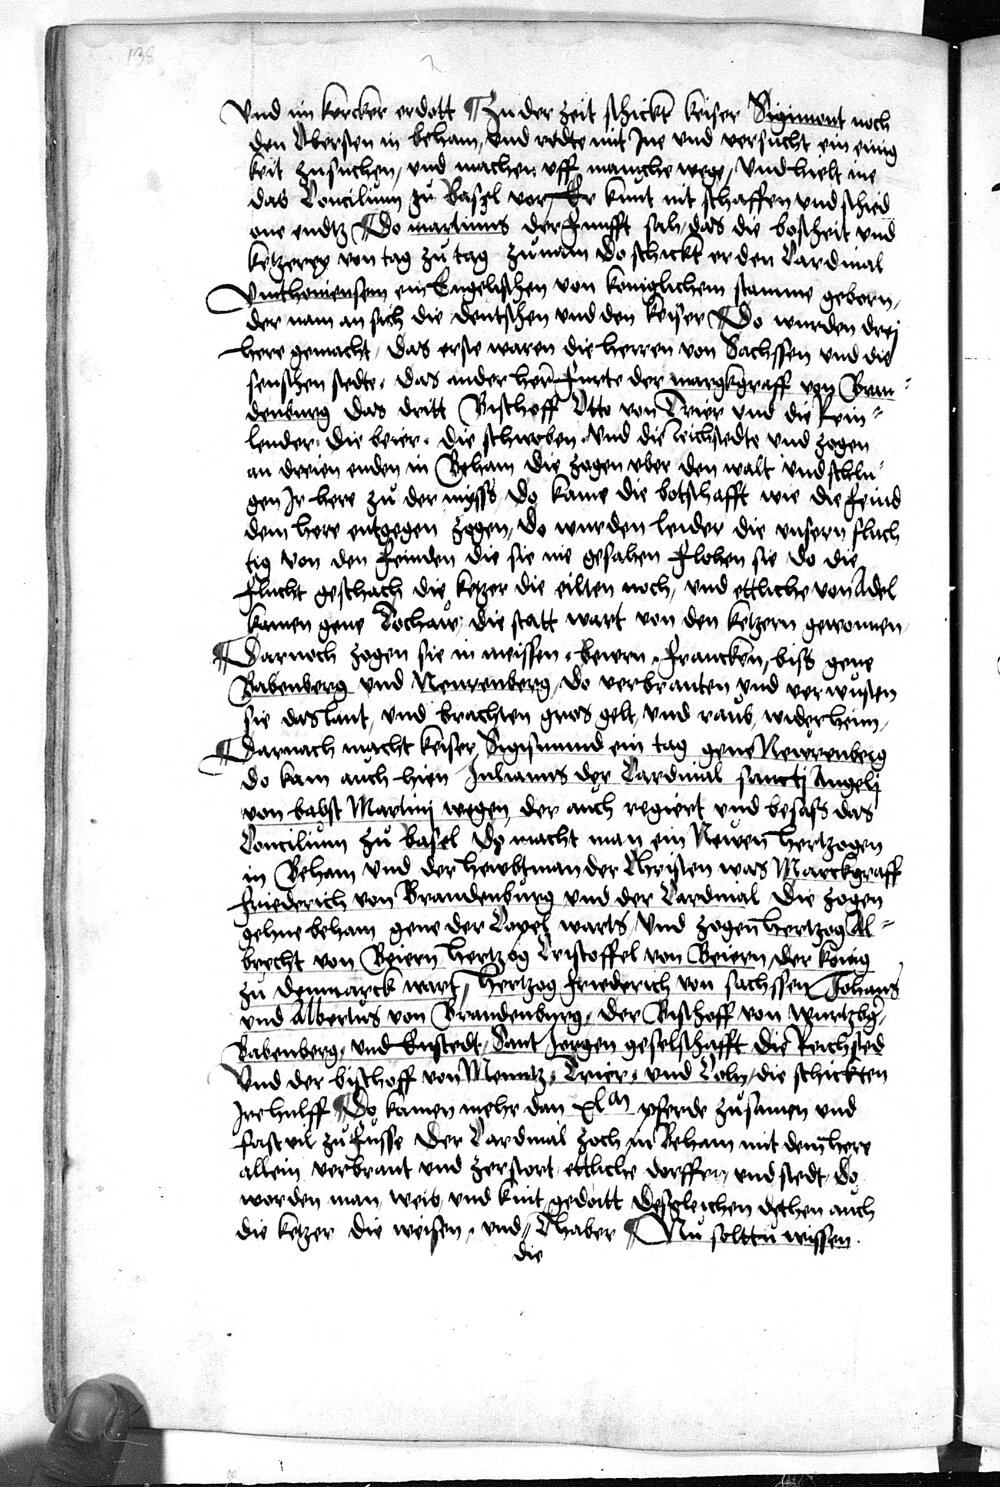 138
Vnd im kercker erdott ¶ Zu der zeit schickt keiser Sigimont noch
den Obersten in beham, vnd redte mit Ine vnd versucht ein einig
keit zusuchen, vnd machen vff manche wege, Vnd hielt ine
das Concilium zu Basel vor Er kunt nit schaffen vnd schied
one endtz ¶ Do martinus der funfft sah, das die boszheit vnd
ketzerey von tag zu tag zunam Do schickt er den Cardinal
Vinthoniensem ein Engelischen von koniglichem stamme geborn,
der nam an sich die deutschen vnd den keiser ¶ Do wurden drej
here gemacht, das erste waren die herren von Sachssen vnd die
senschen stedte, das ander her furte der margkgraff von Bran=
denburg das dritt Bischoff Otto von Trier vnd die Rein=
lender, Die beier, die schwoben, Vnd die reichstedte vnd zogen
an dreien enden in Beham die zogen vber den walt vnd schlu=
gen Ir here zu der myss, do kame die botschafft wie die feind
dem here entgegen zogen, do wurden leider die vnsern fluch
tig von den feinden die sie nie gesahen flohen sie do die
flucht geschach die ketzer die eilten noch, vnd ettliche von Adel
kamen gene Tochaw, die statt wart von den ketzern gewonnen,
¶ Darnoch zogen sie in meissen, beiern, francken, biss gene
Babenberg vnd Neurenberg, do verbranten vnd verwusten
sie das lant, vnd brachten gros gelt, vnd raub, wider heim,
¶ Darnach macht keiser Sigismund ein tag gene Newrenberg
do kam auch hien Julianus der Cardinal sancti Angelj
von babst Martinj wegen, der auch regiert vnd besass das
Concilium zu Basel Do macht man ein Newen hertzogen
in Beham vnd der hewbtman der Christen was Marckgraff
friederich von Brandenburg vnd der Cardinal die zogen
gehne beham gene der Copel warts, Vnd zogen hertzog Al=
brecht von Beiern hertzog Cristoffel von Beiern, der konig
zu denmarck wart, Hertzog friederich von sachssen Johans
vnd Albertus von Brandenburg, der Bischoff von wurtzbg,
Babenberg, vnd Eustedt, Sant Jorgen geselschafft die Reichsted
Vnd der bischoff von Mentz, Trier, vnd Coln, die schickten
Ire hulff ¶ Do kamen mehr dan xlm pferde zusamen vnd
fast vil zu fusse Der Cardinal zoch in Beham mit dem here
allein verbrant vnd zerstort ettliche dorffer, vnd stedt, do
worden man, weib, vnd kint gedott Desgleichen dethen auch
die ketzer die weisen, vnd Thaber ¶ Nu solttu wissen
die